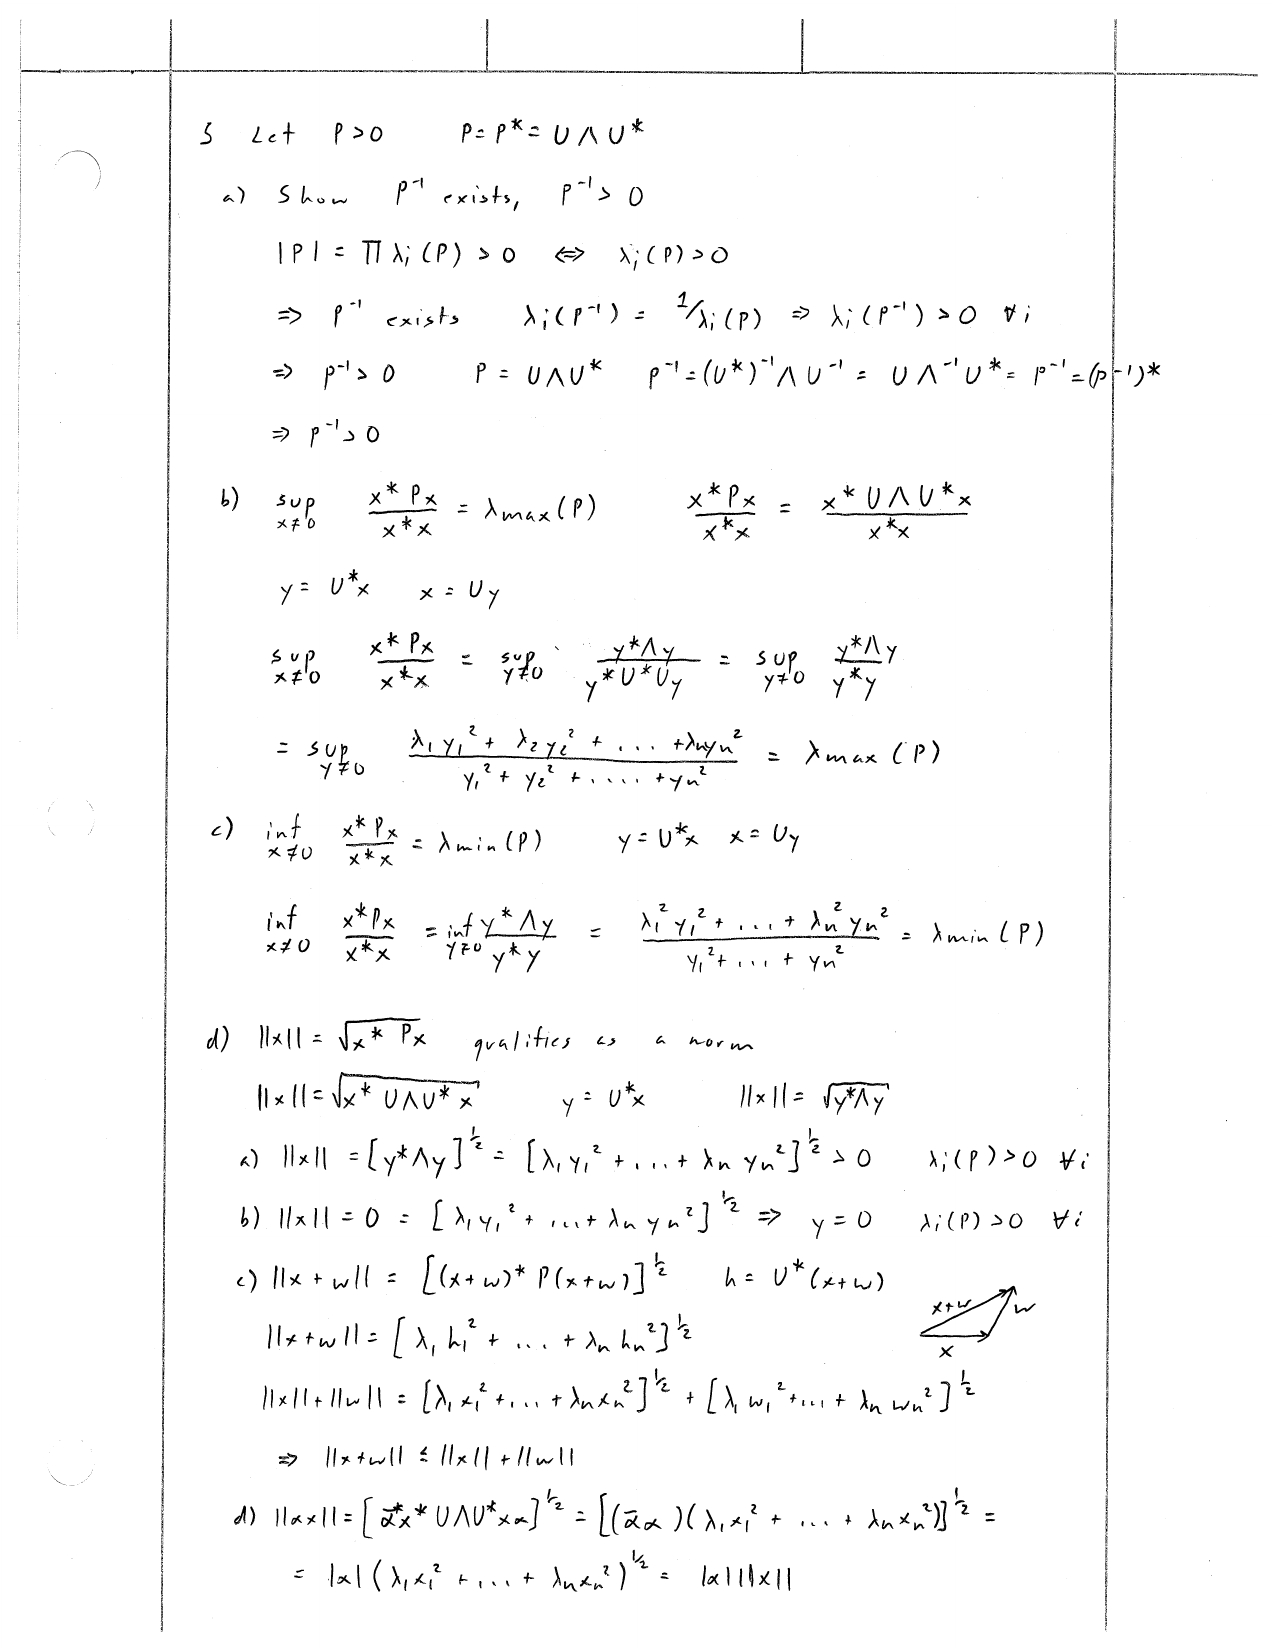 3 Let P>0 P=P*=UΛU*
a) Show P⁻¹ exists, P⁻¹>0
|P| = Π λᵢ(P) > 0 ⇔ λᵢ(P)>0
⇒ P⁻¹ exists λᵢ(P⁻¹) = 1/λᵢ(P) ⇒ λᵢ(P⁻¹) > 0 ∀i
⇒ P⁻¹>0 P = UΛU* P⁻¹=(U*)⁻¹ΛU⁻¹ = UΛ⁻¹U* = P⁻¹=(P⁻¹)*
⇒ P⁻¹>0
b) sup x≠0 x*Px/x*x = λmax(P) x*Px/x*x = x*UΛU*x/x*x
y = U*x x = Uy
sup x≠0 x*Px/x*x = sup y≠0 y*Λy/y*U*Uy = sup y≠0 y*Λy/y*y
= sup y≠0 (λ₁y₁² + λ₂y₂² + .... + λₙyₙ²)/(y₁² + y₂² + ..... + yₙ²) = λmax(P)
c) inf x≠0 x*Px/x*x = λmin(P) y=U*x x=Uy
inf x≠0 x*Px/x*x = inf y≠0 y*Λy/y*y = (λ₁²y₁² + ... + λₙ²yₙ²)/(y₁² + ... + yₙ²) = λmin(P)
d) ||x|| = √(x*Px) qualifies as a norm
||x|| = √(x*UΛU*x) y = U*x ||x|| = √(y*Λy)
a) ||x|| = [y*Λy]^½ = [λ₁y₁² + ... + λₙyₙ²]^½ > 0 λᵢ(P)>0 ∀i
b) ||x|| = 0 = [λ₁y₁² + ... + λₙyₙ²]^½ ⇒ y=0 λᵢ(P)>0 ∀i
c) ||x+w|| = [(x+w)*P(x+w)]^½ h = U*(x+w)
x+w w
x
||x+w|| = [λ₁h₁² + ... + λₙhₙ²]^½
||x||+||w|| = [λ₁x₁²+...+λₙxₙ²]^½ + [λ₁w₁²+...+λₙwₙ²]^½
⇒ ||x+w|| ≤ ||x||+||w||
d) ||αx|| = [ᾱ*x*UΛU*xα]^½ = [(ᾱα)(λ₁x₁² + ... + λₙxₙ²)]^½ =
= |α|(λ₁x₁² + ... + λₙxₙ²)^½ = |α|||x||